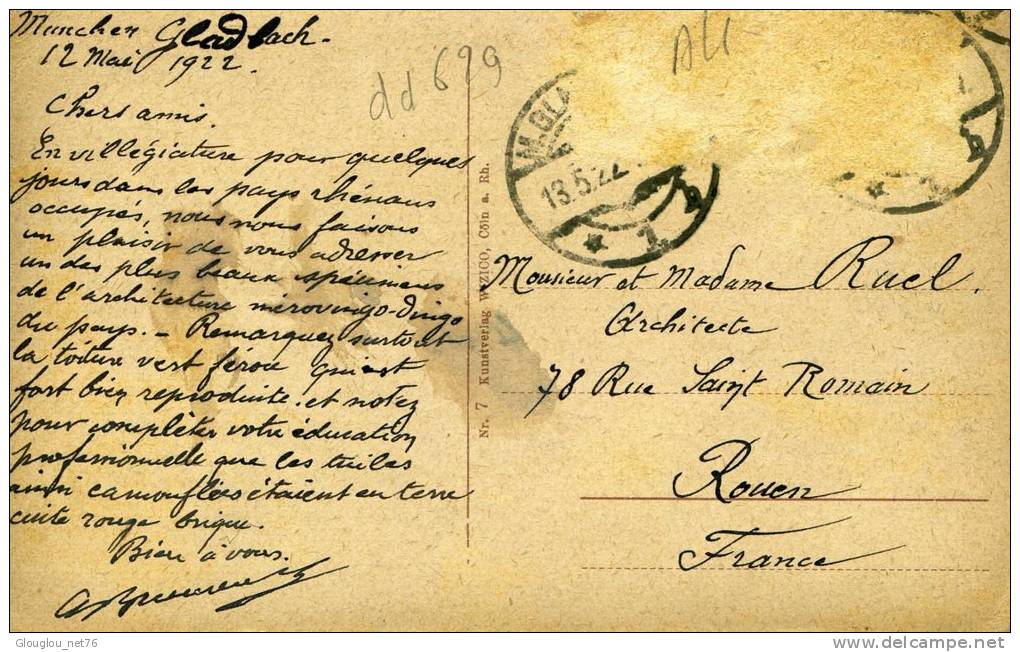 Munchen Gladbach.
12 Mai 1922.
Chers amis.
En villégiature pour quelques
jours dans les pays rhénans
occupés, nous nous faisons
un plaisir de vous adresser
un des plus beaux spécimens
de l'architecture mérovingo-dingo
du pays. - Remarquez surtout
la toiture vert qui est
fort bien reproduite. et notez
pour compléter votre éducation
professionnelle que les tuiles
ainsi camouflées étaient en terre
cuite rouge brique.
Bien à vous.
dd 629
M. GLA
13.5.22
1
Nr. 7 Kunstverlag WIZICO, Cöln a. Rh.
Monsieur et Madame Ruel.
Architecte
78 Rue Saint Romain
Rouen
France
Glouglou_net76
www.delcampe.net